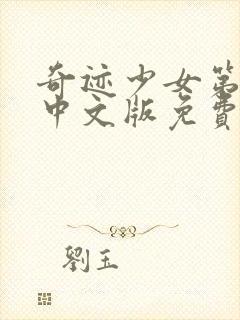 奇迹少女第
中文版免費
劉玉